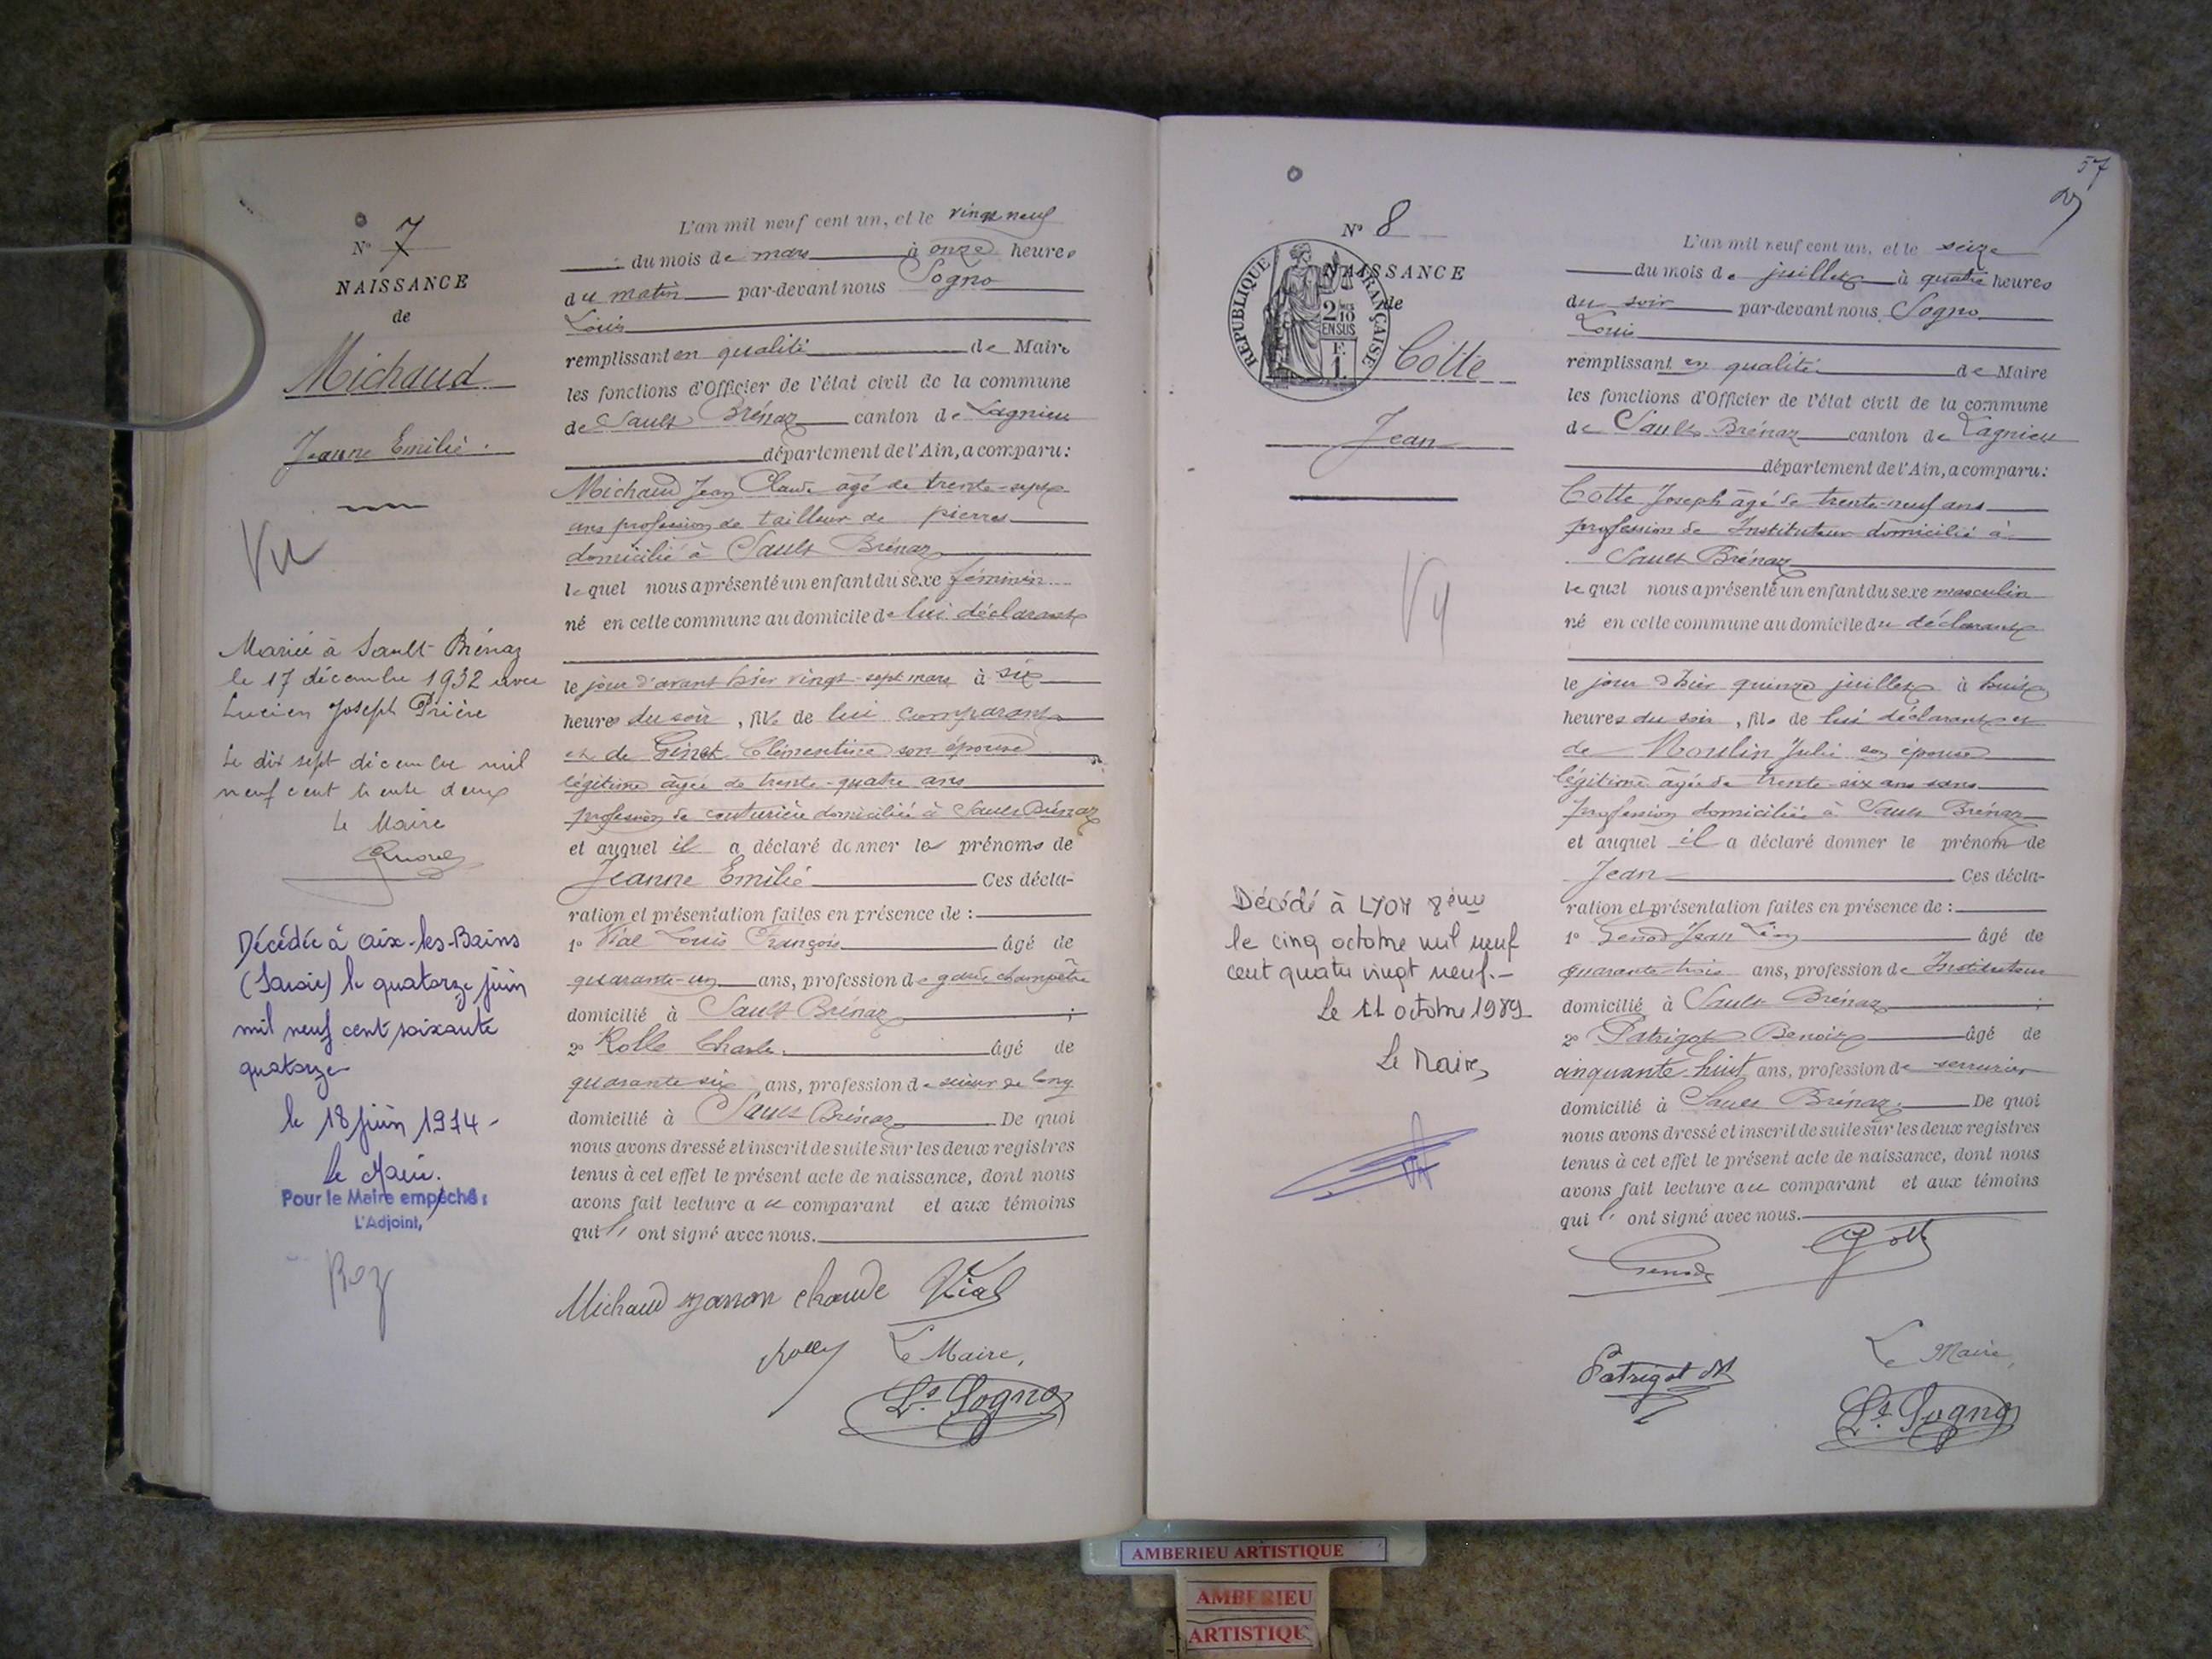 N° 7
NAISSANCE
de
Michaud
Jeanne Emilie.
Vu
Mariée à Sault-Brénaz
le 17 décembre 1932 avec
Lucien Joseph Prière
Le dix sept décembre mil
neuf cent trente deux
Le Maire
Décédée à Aix-les-Bains
(Savoie) le quatorze juin
mil neuf cent soixante
quatorze
le 18 juin 1974 -
Le Maire.
Pour le Maire empêché :
L'Adjoint,
Roz
L'an mil neuf cent un, et le vingt neuf
du mois de mars à onze heures
du matin par-devant nous Sogno
Louis
remplissant en qualité de Maire
les fonctions d'Officier de l'état civil de la commune
de Sault Brénaz canton de Lagnieu
département de l'Ain, a comparu :
Michaud Jean Claude âgé de trente-sept
ans profession de tailleur de pierres
domicilié à Sault Brénaz
lequel nous a présenté un enfant du sexe féminin
né en cette commune au domicile de lui déclarant
le jour d'avant hier vingt-sept mars à six
heures du soir, fils de lui comparant
et de Ginet Clémentine son épouse
légitime âgée de trente-quatre ans
profession de couturière domiciliée à Sault Brénaz
et auquel il a déclaré donner les prénoms de
Jeanne Emilie Ces décla-
ration et présentation faites en présence de :
1° Vial Louis François âgé de
quarante-un ans, profession de garde champêtre
domicilié à Sault Brénaz ;
2° Rolle Charles âgé de
quarante six ans, profession de scieur de long
domicilié à Sault Brénaz De quoi
nous avons dressé et inscrit de suite sur les deux registres
tenus à cet effet le présent acte de naissance, dont nous
avons fait lecture au comparant et aux témoins
qui l' ont signé avec nous.
Michaud Janon Claude Vial
Rolle Le Maire,
Ls Sogno
57
N° 8
RÉPUBLIQUE FRANÇAISE
2/10 EN SUS
NAISSANCE
de
Cotte
Jean
Vu
Décédé à LYON 8ème
le cinq octobre mil neuf
cent quatre vingt neuf.-
Le 11 octobre 1989
Le Maire,
L'an mil neuf cent un, et le seize
du mois de juillet à quatre heures
du soir par-devant nous Sogno
Louis
remplissant en qualité de Maire
les fonctions d'Officier de l'état civil de la commune
de Sault Brénaz canton de Lagnieu
département de l'Ain, a comparu :
Cotte Joseph âgé de trente-neuf ans
profession de Instituteur domicilié à
Sault Brénaz
lequel nous a présenté un enfant du sexe masculin
né en cette commune au domicile du déclarant
le jour d'hier quinze juillet à huit
heures du soir, fils de lui déclarant et
de Moulin Julie son épouse
légitime âgée de trente-six ans sans
profession domiciliée à Sault Brénaz
et auquel il a déclaré donner le prénom de
Jean Ces décla-
ration et présentation faites en présence de :
1° Genod Jean Léon âgé de
quarante-trois ans, profession de Instituteur
domicilié à Sault Brénaz ;
2° Patrigot Benoit âgé de
cinquante-huit ans, profession de serrurier
domicilié à Sault Brénaz De quoi
nous avons dressé et inscrit de suite sur les deux registres
tenus à cet effet le présent acte de naissance, dont nous
avons fait lecture au comparant et aux témoins
qui l' ont signé avec nous.
Genod Cotte
Patrigot Le Maire,
Ls Sogno
AMBERIEU ARTISTIQUE
AMBERIEU
ARTISTIQUE